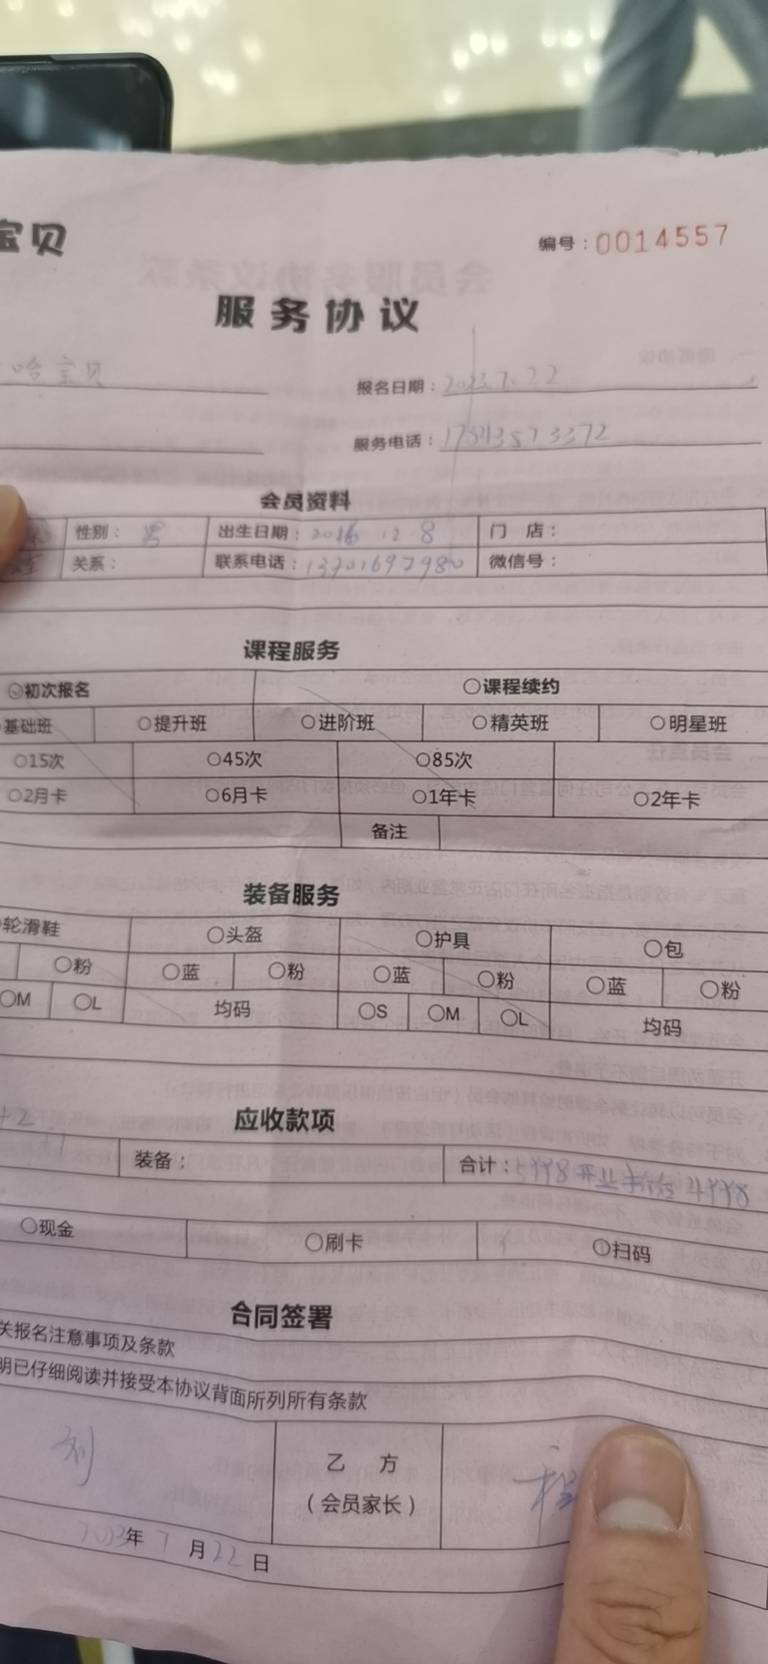 宝贝
编号：0014557
服务协议
哈宝贝 报名日期：2023.7.22
服务电话：
会员资料
性别：男 出生日期：2016 12 8 门 店：
关系： 联系电话： 微信号：
课程服务
○初次报名 ○课程续约
基础班 ○提升班 ○进阶班 ○精英班 ○明星班
○15次 ○45次 ○85次
○2月卡 ○6月卡 ○1年卡 ○2年卡
备注
装备服务
轮滑鞋 ○头盔 ○护具 ○包
○粉 ○蓝 ○粉 ○蓝 ○粉 ○蓝 ○粉
○M ○L 均码 ○S ○M ○L 均码
应收款项
装备： 合计：5998开业 4998
○现金 ○刷卡 ○扫码
合同签署
关报名注意事项及条款
明已仔细阅读并接受本协议背面所列所有条款
刘 乙 方
（会员家长）
2023年7月22日